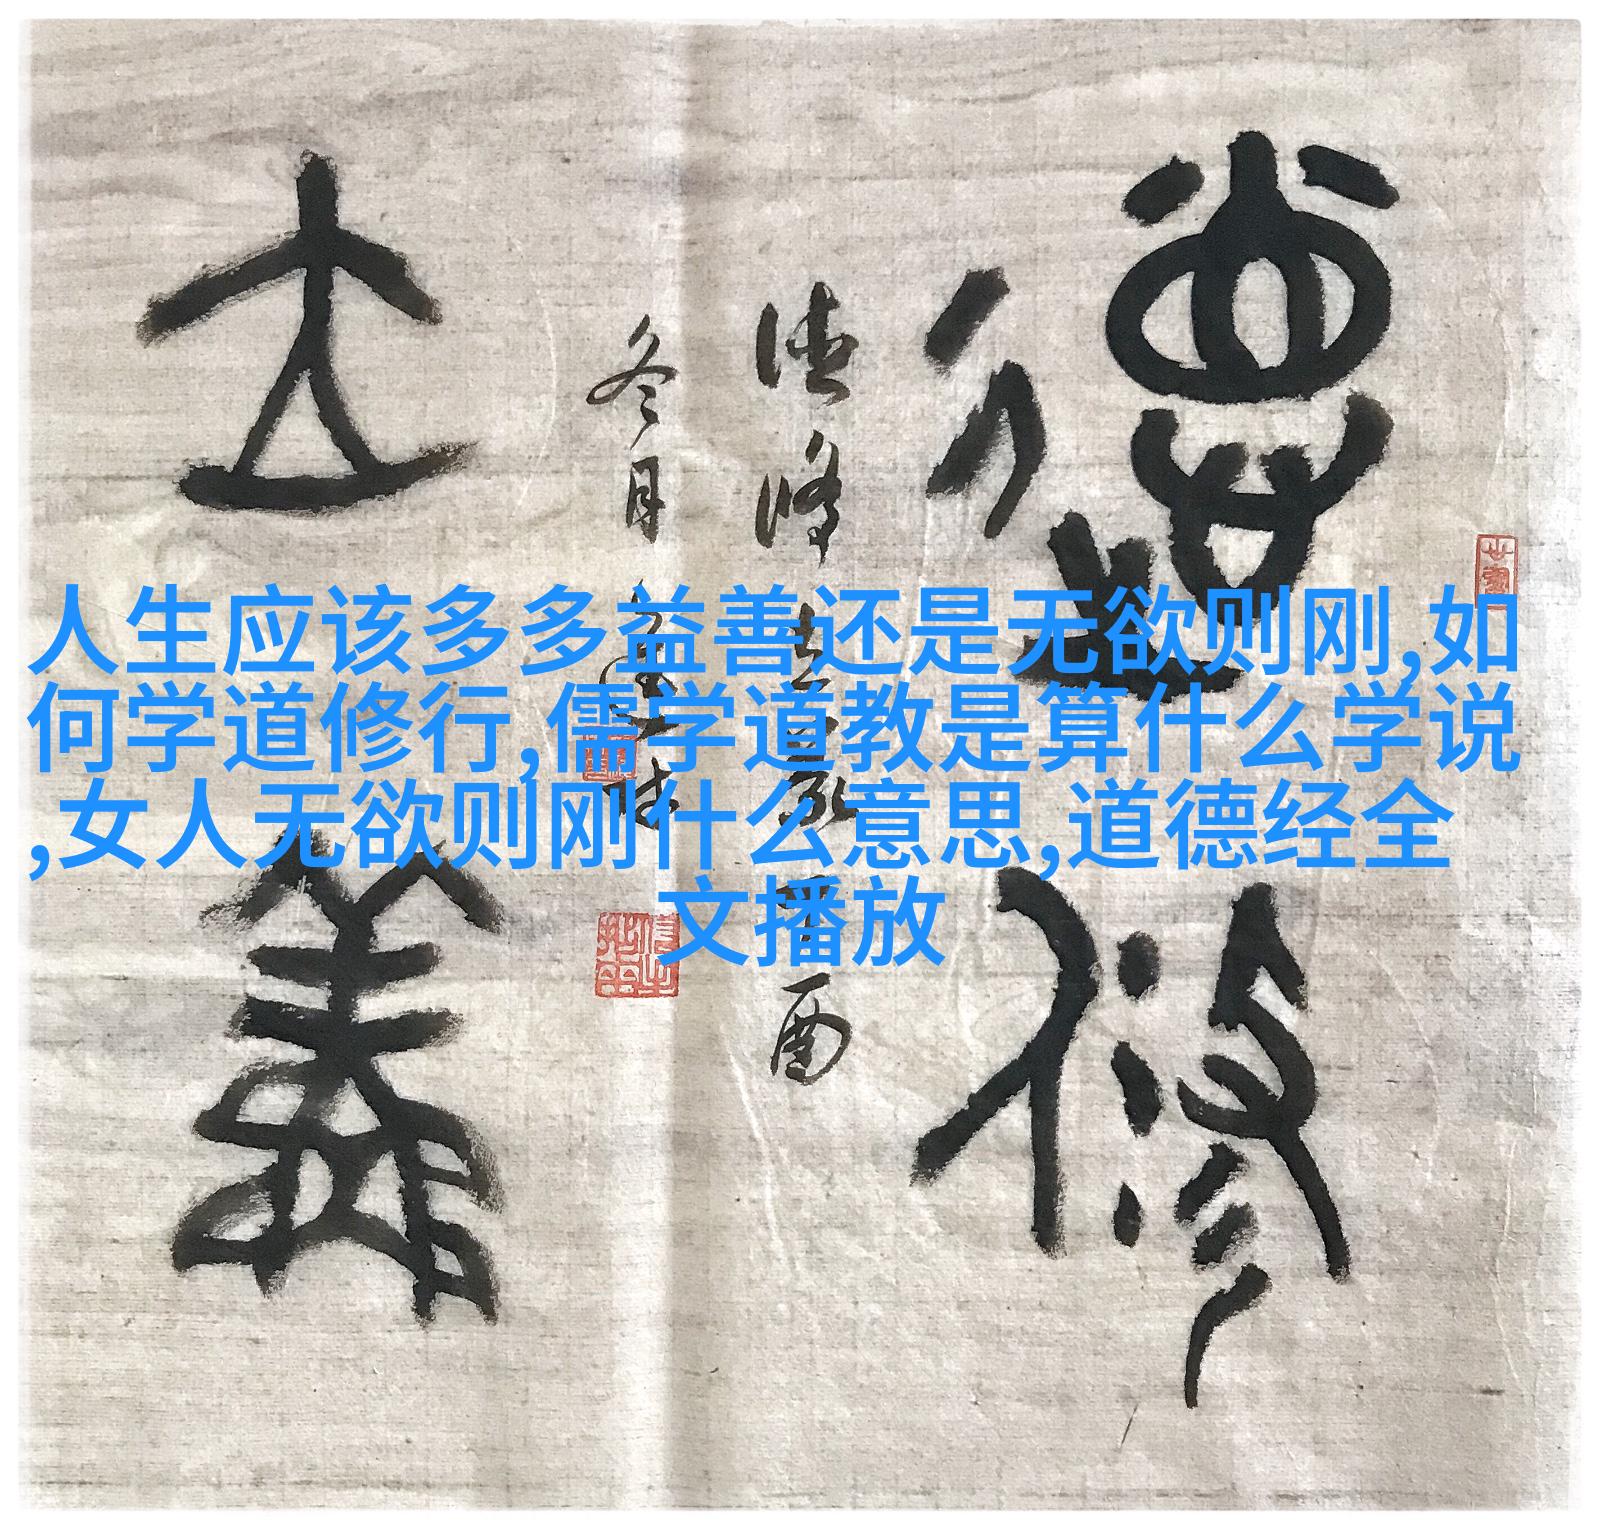 德修
立義
冬月
人生应该多多益善还是无欲则刚,如
何学道修行,儒学道教是算什么学说
,女人无欲则刚什么意思,道德经全
文播放